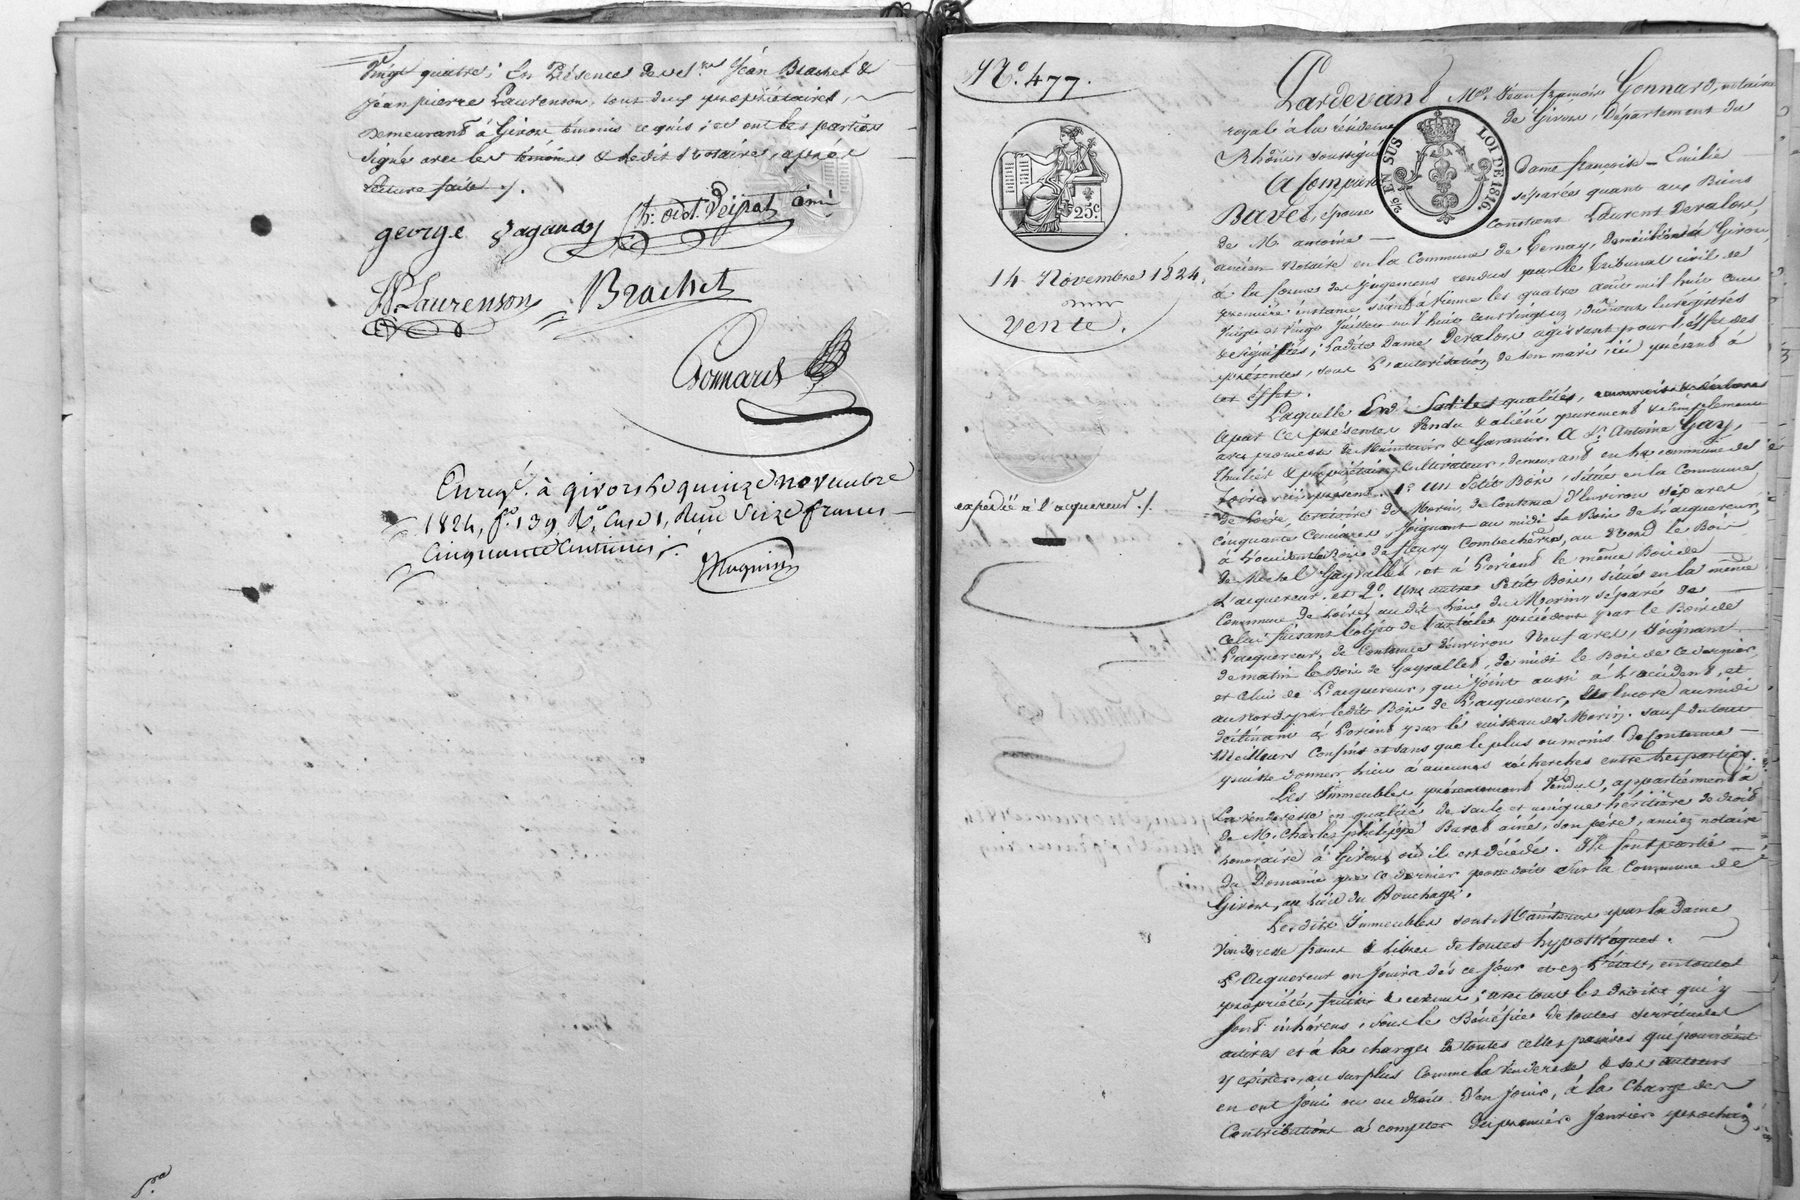 Vingt quatre ; En Présence de ss.rs Jean Brachet &
Jean pierre Laurenson, tous deux propriétaires,
demeurant à Givors témoins requis ; et ont les parties
signé avec les témoins & ledit Notaire, après
Lecture faite ./.
george Pagandy Ch: odet Veipat ainé
JP Laurenson Brachet
Gonnard
Enregé. à givors le quinze novembre
1824, fo. 139 Ro. Case 1, Reçu Seize francs
Cinquante Centimes ./.
8.re
No. 477.
25c
14 Novembre 1824.
Vente.
expédié à l'acquereur ./.
EN SUS LOI DE 1816.
Pardevant Me. Jean françois Gonnard, notaire
royal à la résidence de Givors, Département du
Rhône, soussigné
A Comparu Dame françoise Emilie
Baret, épouse séparée quant aux Biens
de M. antoine Constant Laurent Devalors,
ancien Notaire en la Commune de Ternay, demeurant à Givors,
à la forme des jugemens rendus par le Tribunal civil de
première instance séant à Vienne les quatre août mil huit cent
Vingt et vingt Juillet mil huit cent vingt un, dûment enregistrés
& signifiés ; Ladite Dame Devalors agissant pour l'effet des
présentes, sous L'autorisation de son mari ici présent à
cet effet.
Laquelle En Sadites qualités, reconnoit & déclare
avoir Ces présentes Vendu & aliéné purement & simplement
avec promesse de Maintenir & Garantir. A Sr. Antoine Gay,
thulier & propriétaire Cultivateur, demeurant en la commune de
Loire, ici présent. 1o. un Petit Bois, situé en la Commune
de Loire, territoire de Morin, de Contenue d'Environ sept ares
cinquante Centiares, Joignant au midi le Bois de L'acquereur,
à L'occident le Bois de fleury Combechère, au Nord le Bois
de Michel Gayvallet, et à L'orient le même Bois de
L'acquereur. et 2o. Une autre Petit Bois, situé en la même
Commune de Loire, au dit Lieu de Morin, séparé de
Celui faisant l'objet de l'article précédent par le Bois de
L'acquereur, de Contenue d'environ Neuf ares, Joignant
de matin le Bois de Gayvallet, de midi le Bois de ce dernier,
et Celui de L'acquereur, qui Joint aussi à L'occident, et
au Nord par ledit Bois de L'acquereur, encore au midi
déclinant à L'orient par le ruisseau de Morin, sauf de tous
Meilleurs Confins et sans que le plus ou moins de Contenue
puisse donner Lieu à aucunes recherches entre les parties.
Les Immeubles présentement Vendus, appartiennent à
La venderesse en qualité de seule et unique héritière de droit
de M. Charles philippe Baret ainé, son père, ancien notaire
honoraire à Givors, où il est décédé. Ils font partie
du Domaine que ce dernier possédoit sur la Commune de
Givors, au Lieu du Bouchage.
Lesdits Immeubles sont Maintenus par la Dame
Venderesse francs & Libres de toutes hypothèques.
L'acquereur en Jouira dès ce Jour en toute
propriété, fruits & revenus ; avec tous les droits qui y
sont inhérens, sous le Bénéfice de toutes servitudes
actives et à la charge de toutes celles passives qui pourroient
y exister, au surplus comme la venderesse & ses auteurs
en ont Joui ou eu droit d'en Jouir, à la Charge des
Contributions à compter du premier Janvier prochain,